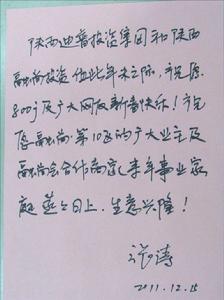 陕西迪普投资集团和陕西
融尚投资 值此年末之际，祝愿
800万及广大网友新春快乐！祝
愿融尚·第10区的广大业主及
融尚会合作商家，来年事业家
庭蒸蒸日上，生意兴隆！
涛
2011.12.15